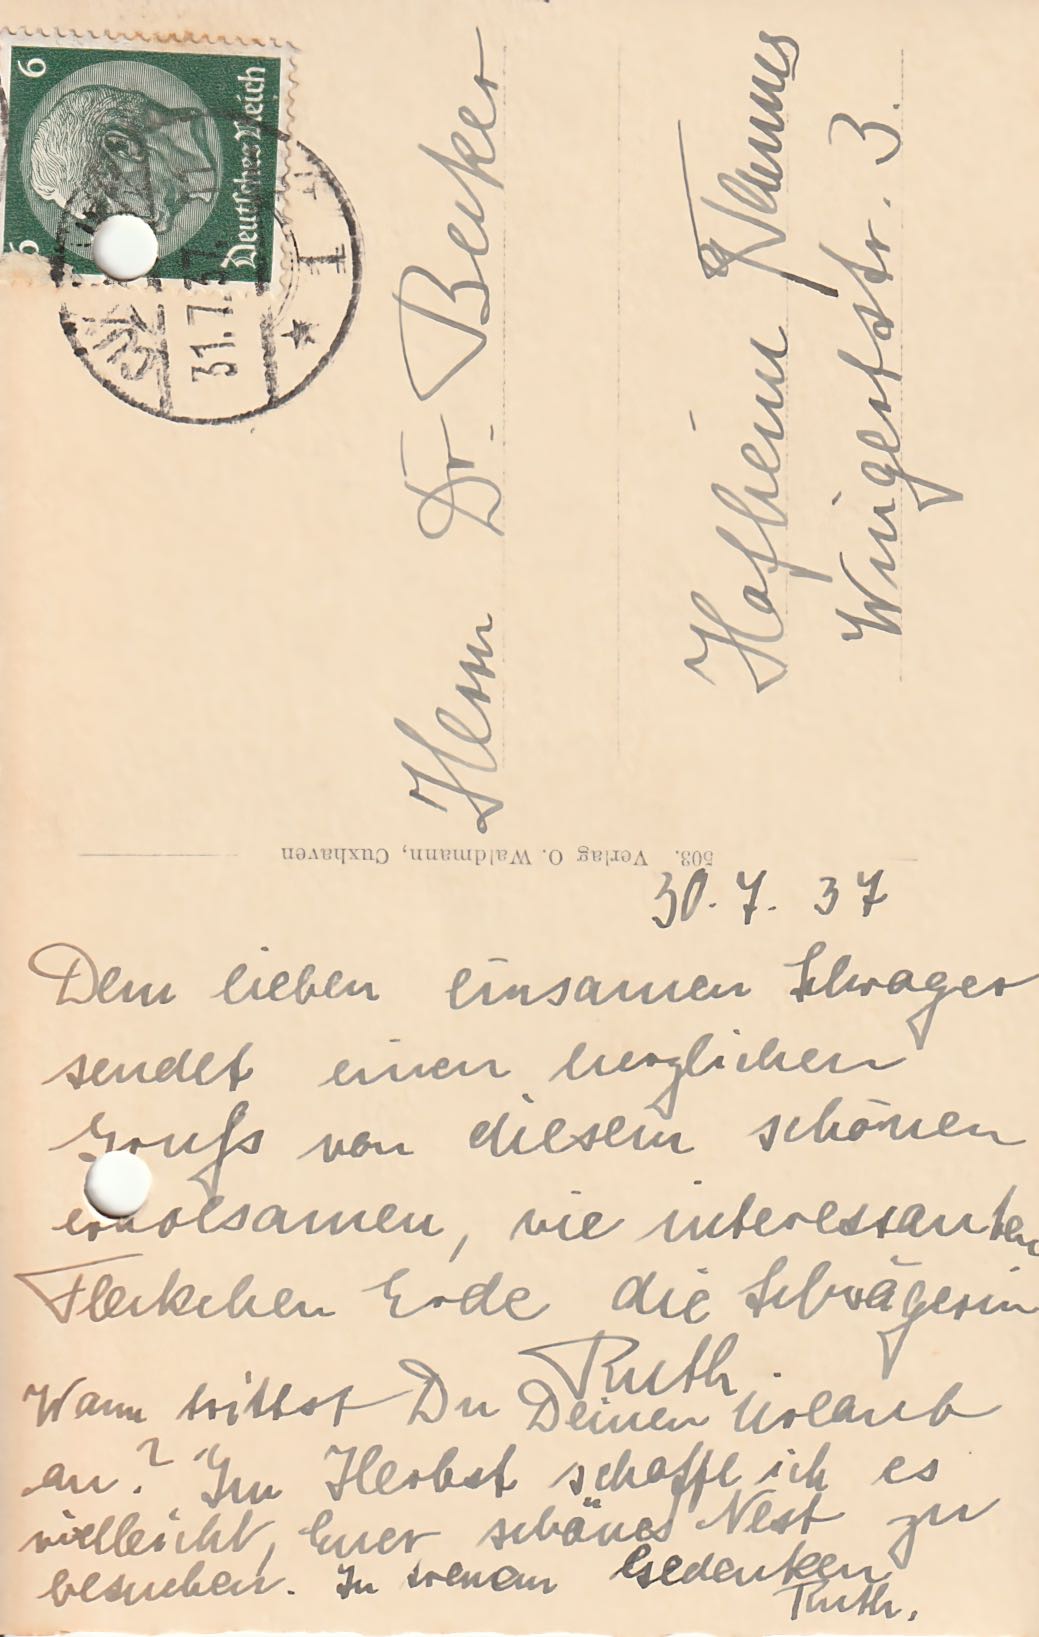 6
6
Deutsches Reich
31.7.37.
Herrn Dr. Becker
Hofheim a/Taunus
Wingertstr. 3.
503. Verlag O. Waldmann, Cuxhaven
30. 7. 37
Dem lieben einsamen Schwager
sendet einen herzlichen
Gruß von diesem schönen
erholsamen, wie interessanten
Fleckchen Erde die Schwägerin
Ruth.
Wann trittst Du Deinen Urlaub
an? Im Herbst schaffe ich es
vielleicht, Euer schönes Nest zu
besuchen. In treuem Gedenken
Ruth.